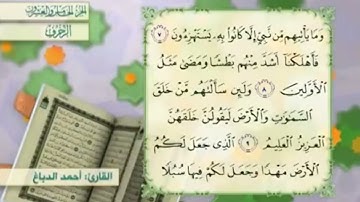 الجزء الخامس والعشرون
الزخرف
وَمَا يَأْتِيهِم مِّن نَّبِيٍّ إِلَّا كَانُوا۟ بِهِۦ يَسْتَهْزِءُونَ ٧
فَأَهْلَكْنَآ أَشَدَّ مِنْهُم بَطْشًا وَمَضَىٰ مَثَلُ
ٱلْأَوَّلِينَ ٨ وَلَئِن سَأَلْتَهُم مَّنْ خَلَقَ
ٱلسَّمَٰوَٰتِ وَٱلْأَرْضَ لَيَقُولُنَّ خَلَقَهُنَّ
ٱلْعَزِيزُ ٱلْعَلِيمُ ٩ ٱلَّذِى جَعَلَ لَكُمُ
ٱلْأَرْضَ مَهْدًا وَجَعَلَ لَكُمْ فِيهَا سُبُلًا
القارئ: أحمد الدباغ